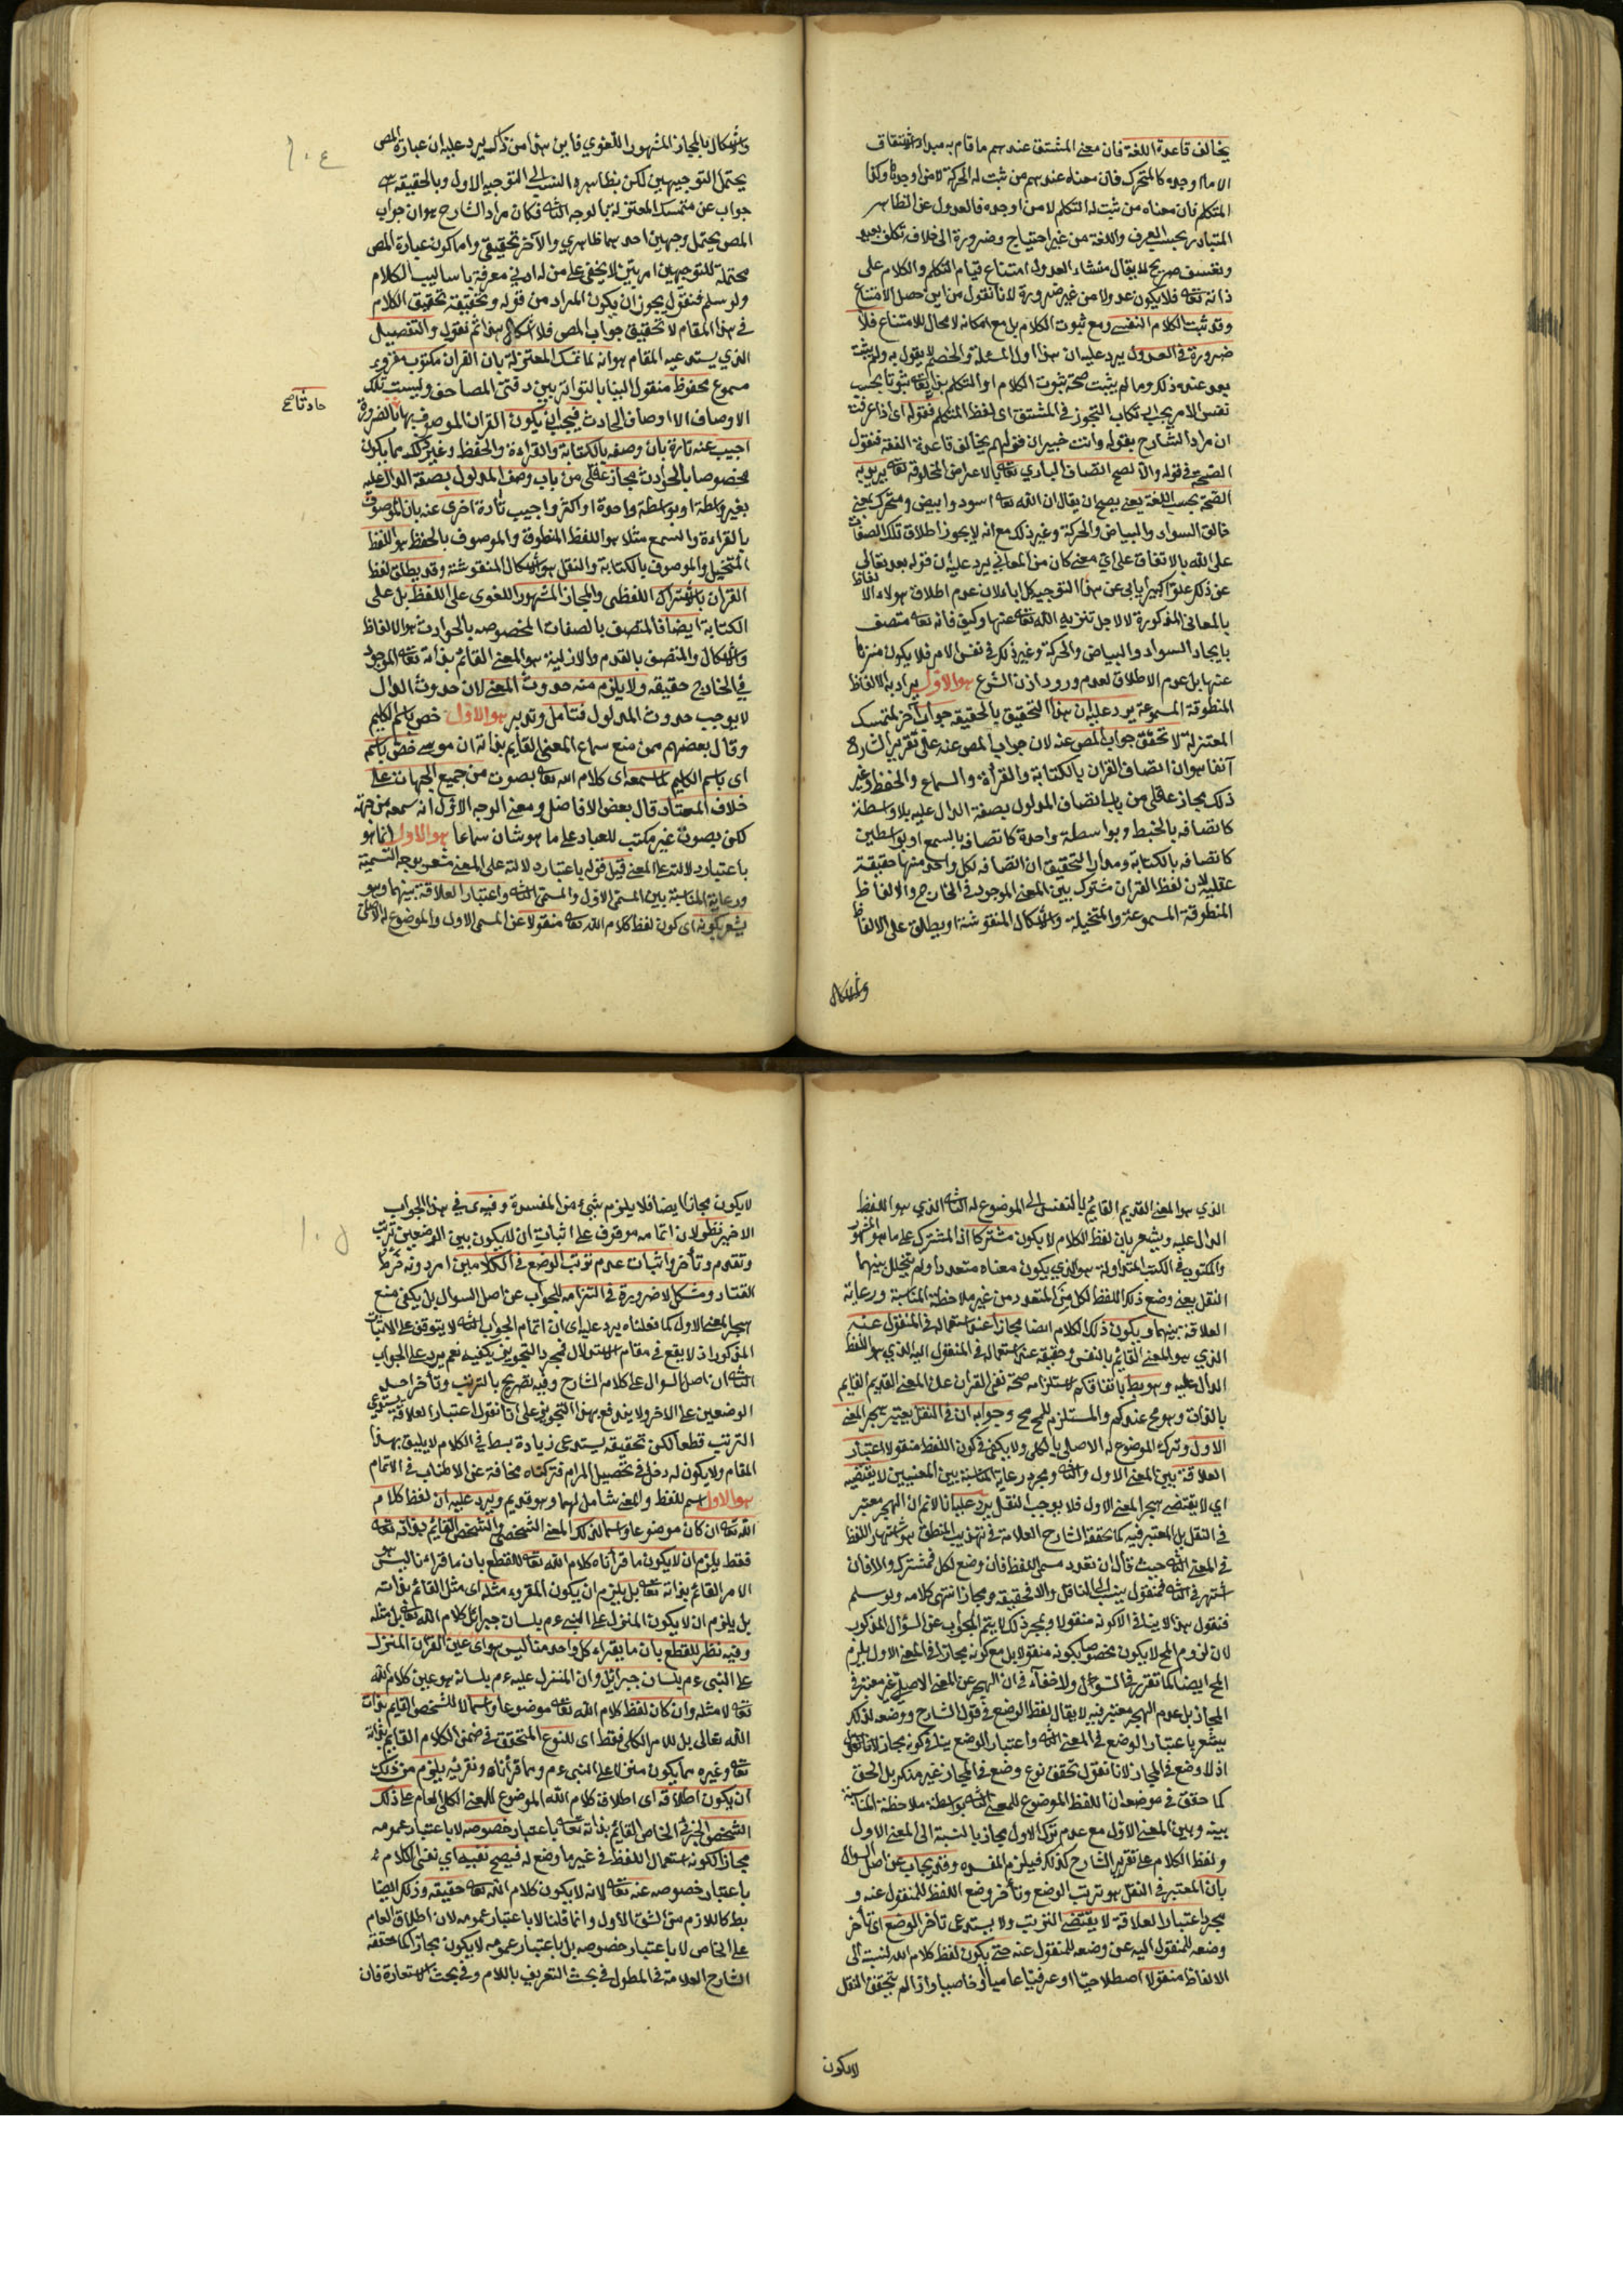 يخالف قاعدة اللغة فان معنى المشتق عندهم ما قام به مبدأ الاشتقاق
لا ما اوجده كالمتحرك فان معناه عندهم من ثبت له الحركة لا من اوجدها وكذا
المتكلم فان معناه من ثبت له التكلم لا من اوجده فالعدول عن الظاهر
المتبادر بحسب العرف واللغة من غير احتياج وضرورة الى خلافه تكلف بعيد
وتعسف صريح لا يقال منشاء العدول امتناع قيام التكلم والكلام على
ذاته تعالى فلا يكون عدولا من غير ضرورة لانا نقول من اين حصل الامتناع
وقد ثبت الكلام النفسي ومع ثبوت الكلام بل مع امكانه لا مجال للامتناع فلا
ضرورة في العدول يرد عليه ان هذا اول المسئلة والخصم لا يقول به ولم يثبت
بعد عنده ذلك وما لم يثبت صحة ثبوت الكلام او التكلم بذاته تعالى ثبوتا بحسب
نفس الامر يجب ارتكاب التجوز في المشتق اى لفظ المتكلم قوله اى اذا عرفت
ان مراد الشارح بقوله وانت خبير ان قولهم يخالف قاعدة اللغة فنقول
الصحة في قوله والا لصح اتصاف الباري تعالى بالاعراض المخلوقة تعالى يريد به
الصحة بحسب اللغة يعنى يصح ان يقال ان الله تعالى اسود وابيض ومتحرك بمعنى
خالق السواد والبياض والحركة وغير ذلك مع انه لا يجوز اطلاق تلك الصفات
على الله بالاتفاق على اي معنى كان من المعاني يرد عليه ان قوله بعد تعالى
عن ذلك علوا كبيرا يابى عن هذا التوجيه كل اباء لان عدم اطلاق هولاء الالفاظ
بالمعانى المذكورة لا لاجل تنزيه الله تعالى عنها وكيف فانه تعالى متصف
بايجاد السواد والبياض والحركة وغير ذلك في نفس الامر فلا يكون منزها
عنها بل عدم الاطلاق لعدم ورود اذن الشرع هو الاول يراد به الالفاظ
المنطوقة المسموعة يرد عليه ان هذا التحقيق بالحقيقة جواب آخر لمتمسك
المعتزلة لا تحقق جواب المص عنه لان جواب المص عنه على تقرير الشارح
آنفا هو ان اتصاف القران بالكتابة والقرأة والسماع والحفظ وغير
ذلك مجاز عقلي من باب اتصاف المدلول بصفة الدال عليه بلا واسطة
كاتصافه بالخبط وبواسطة واحدة كاتصافه بالسمع او بواسطين
كاتصافه بالكتابة ومدار التحقيق ان اتصافه لكل واحد منها حقيقة
عقلية لان لفظ القران مشترك بين المعنى الموجود في الخارج والالفاظ
المنطوقة المسموعة والمتخيلة والاشكال المنقوشة او يطلق على الالفاظ
والاشكال
والاشكال بالمجاز المشهور اللغوي فاين هذا من ذاك يرد عليه ان عبارة المص
يحتمل التوجيهين لكن بظاهره النسب الى التوجيه الاول وبالحقيقة هى
جواب عن متمسك المعتزلة بالوجه الثانى فكان مراد الشارح هو ان جواب
المص يحتمل وجهين احدهما ظاهري والآخر تحقيقي واما كون عبارة المص
محتملة للتوجيهين امر بين لا يخفى على من له ادنى معرفة باساليب الكلام
ولو سلم فنقول يجوز ان يكون المراد من قوله وتحقيقه تحقيق الكلام
في هذا المقام لا تحقيق جواب المص فلا اشكال هذا ثم نقول والتفصيل
الذي يستدعيه المقام هو انه لما تمسك المعتزلة بان القران مكتوب مقروء
مسموع محفوظ منقول الينا بالتواتر بين دفتى المصاحف وليست تلك
الاوصاف الا اوصاف الحادث فيجب ان يكون القران الموصوف بها بالضرورة
حادثا صح
اجيب عنه تارة بان وصفه بالكتابة والقراءة والحفظ وغير ذلك مما يكون
مخصوصا بالحوادث مجاز عقلى من باب وصف المدلول بصفة الدال عليه
بغير واسطة او بواسطة واحدة او اكثر واجيب تارة اخرى عنه بان الموصوف
بالقراءة والسمع مثلا هو اللفظ المنطوقة والموصوف بالحفظ هو اللفظ
المتخيل والموصوف بالكتابة والنقل هو الاشكال المنقوشة وقد يطلق لفظ
القران بالاشتراك اللفظى والمجاز المشهور اللغوى على اللفظ بل على
الكتابة ايضا فالمتصف بالصفات المخصوصه بالحوادث هو الالفاظ
والاشكال والمتصف بالقدم والازلية هو المعنى القائم بذاته تعالى الموجود
في الخارج حقيقه ولا يلزم منه حدوث المعنى لان حدوث الدال
لا يوجب حدوث المدلول فتأمل وتدبر هو الاول خص باسم الكليم
وقال بعضهم ممن منع سماع المعنى القايم بذاته ان موسى خص باسم
اى باسم الكليم لما سمعه اى كلام الله تعالى بصوت من جميع الجهات على
خلاف المعتاد قال بعض الافاضل ومعنى الوجه الاول انه سمعه من جهة
لكن بصوت غير مكتسب للعباد على ما هو شان سماعا هو الاول انما هو
باعتبار دلالته على المعنى قيل قوله باعتبار دلالته على المعنى مشعر بوجه التسمية
ورعاية المناسبة بين المسمى الاول والمسمى الثانى واعتبار العلاقة بينهما وهو
يشعر بكونه اى كون لفظ كلام الله تعالى منقولا عن المسمى الاول والموضوع له الاصلى
١٠٤
الذي هو المعنى القديم القايم بالنفس الى الموضوع له الثانى الذي هو اللفظ
الدال عليه ويشعر بان لفظ الكلام لا يكون مشتركا اذ المشترك على ما هو المشهور
والمكتوب في الكتب المتداولة هو الذي يكون معناه متعددا ولم يتخلل بينهما
النقل يعنى وضع ذلك اللفظ لكل من المتعدد من غير ملاحظة المناسبة ورعاية
العلاقة بينهما ويكون ذلك الكلام ايضا مجازا عند استعماله في المنقول عنه
الذي هو المعنى القائم بالنفس وحقيقة عند استعماله في المنقول اليه الذي هو اللفظ
الدال عليه وهو بط باتفاقكم لاستلزامه صحة نفى القران على المعنى القديم القايم
بالذات وهو مح عندكم والمستلزم للمح مح وجوابه ان في النقل يعتبر هجر المعنى
الاول وترك الموضوع له الاصلى بالكلى ولا يكفى في كون اللفظ منقولا اعتبار
العلاقة بين المعنى الاول والثانى ومجرد رعاية المناسبة بين المعنيين لا يقتضيه
اى لا يقتضى هجر المعنى الاول فلا يوجب النقل يرد عليه انا لانم ان الهجر معتبر
في النقل بل المعتبر فيه كما حققه الشارح العلامة في تهذيب المنطق هو اشتهار اللفظ
في المعنى الثانى حيث قال ان تعدد مسمى اللفظ فان وضع لكل فمشترك والا فان
اشتهر في الثانى فمنقول ينسب الى الناقل والا فحقيقة ومجاز انتهى كلامه ولو سلم
فنقول هذا لا ينافى الا كونه منقولا وبمجرد ذلك لا يتم الجواب عن السؤال المذكور
لان لزوم المح لا يكون مخصوصا بكونه منقولا بل مع كونه مجازا في المعنى الاول يلزم
المح ايضا كما تقرر في السؤال ولا خفآء في ان الهجر عن المعنى الاصلي غير معتبر في
المجاز بل عدم الهجر معتبر فيه لا يقال لفظ الوضع في قول الشارح ووضعه لذلك
يشعر باعتبار الوضع في المعنى الثانى واعتبار الوضع ينافى كونه مجازا لانا نقول
اذ لا وضع في المجاز لانا نقول تحقق نوع وضع في المجاز غير منكر بل الحق
كما حقق في موضعه ان اللفظ الموضوع للمعنى الثانى بواسطة ملاحظة المناسبة
بينه وبين المعنى الاول مع عدم ترك الاول مجاز بالنسبة الى المعنى الاول
ولفظ الكلام على تقرير الشارح كذلك فيلزم المفسده وقد يجاب عن اصل السوال
بان المعتبر في النقل هو ترتب الوضع وتأخر وضع اللفظ للمنقول عنه و
مجرد اعتبار العلاقة لا يقتضى الترتيب ولا يستدعى تأخر الوضع اى تأخر
وضعه للمنقول اليه عن وضعه للمنقول عنه حتى يكون لفظ كلام الله بالنسبة الى
الالفاظ منقولا اصطلاحيا او عرفيا عاميا او خاصيا واذا لم يتحقق النقل
لا يكون
لا يكون مجازا ايضا فلا يلزم شئ من المفسدة وفيه اى في هذا الجواب
الاخير نظر لان اتمامه موقوف على اثبات ان لا يكون بين الوضعين ترتب
وتقدم وتأخر واثبات عدم ترتب الوضع في الكلامين امر دونه خرط
القتاد ومشكل لا ضرورة في التزامه للجواب عن اصل السوال بل يكفى منع
هجر المعنى الاول كما فعلناه يرد عليه اى ان اتمام الجواب الثانى لا يتوقف على الاثبات
المذكور اذ لا يقع في مقام الاستدلال فمجرد التجويز يكفيه نعم يرد على الجواب
الثانى ان اصل السوال على كلام الشارح وفيه تصريح بالترتب وتأخر احد
الوضعين على الاخر ولا يندفع بهذا التجويز على انا نقول اعتبار العلاقة يستدعي
الترتب قطعا لكن تحقيقه يستدعى زيادة بسط في الكلام لا يليق بهذا
المقام ولا يكون له دخل في تحصيل المرام فتركناه مخافة عن الاطناب في الاتمام
هو الاول اسم للفظ والمعنى شامل لهما وهو قديم ويرد عليه ان لفظ كلام
الله تعالى ان كان موضوعا واسما لذلك المعنى الشخصى والشخص القايم بذاته تعالى
فقط يلزم ان لا يكون ما قرأناه كلام الله تعالى للقطع بان ما قرأنا ليس هو
الامر القائم بذاته تعالى بل يلزم ان يكون المقروء مثله اى مثل القائم بذاته
بل يلزم ان لا يكون المنزل على النبى ءم بلسان جبرائل كلام الله تعالى بل مثله
وفيه نظر للقطع بان ما يقراء كل واحد منا ليس هو اى عين القران المنزل
على النبى ءم بلسان جبرائل وان المنزل عليه ءم بلسانه هو عين كلام الله
تعالى لا مثله وان كان لفظ كلام الله تعالى موضوعا واسما لا للشخص القايم بذات
الله تعالى بل للامر الكلى فقط اى للنوع المتحقق في ضمن الكلام القايم بذاته
تعالى وغيره مما يكون منزلا على النبى ءم ومما قرأناه ونقرئه يلزم من ذلك
ان يكون اطلاقه اى اطلاق كلام الله الموضوع للمعنى الكلى العام على ذلك
الشخص الجزئى الخاص القايم بذاته تعالى باعتبار خصوصه لا باعتبار عمومه
مجازا لكونه استعمال اللفظ في غير ما وضع له فيصح نفيه اى نفى الكلام
باعتبار خصوصه عنه تعالى لانه لا يكون كلام الله تعالى حقيقه وذلك ايضا
بط كاللازم من الشق الاول وانما قلنا لا باعتبار عمومه لان اطلاق العام
على الخاص لا باعتبار خصوصه بل باعتبار عمومه لا يكون مجازا كما حققه
الشارح العلامة في المطول في بحث التعريف باللام وفي بحث الاستعارة فان
١٠٥